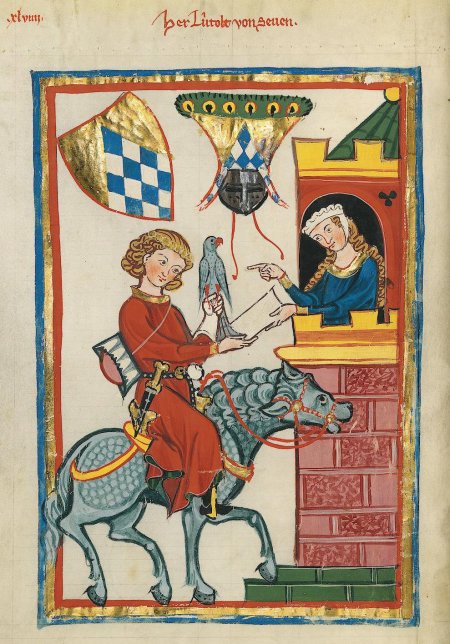 xlviiij
Her Lůtolt von seuen.